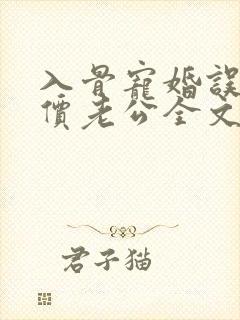 入骨寵婚誤
價老公全文
君子猫